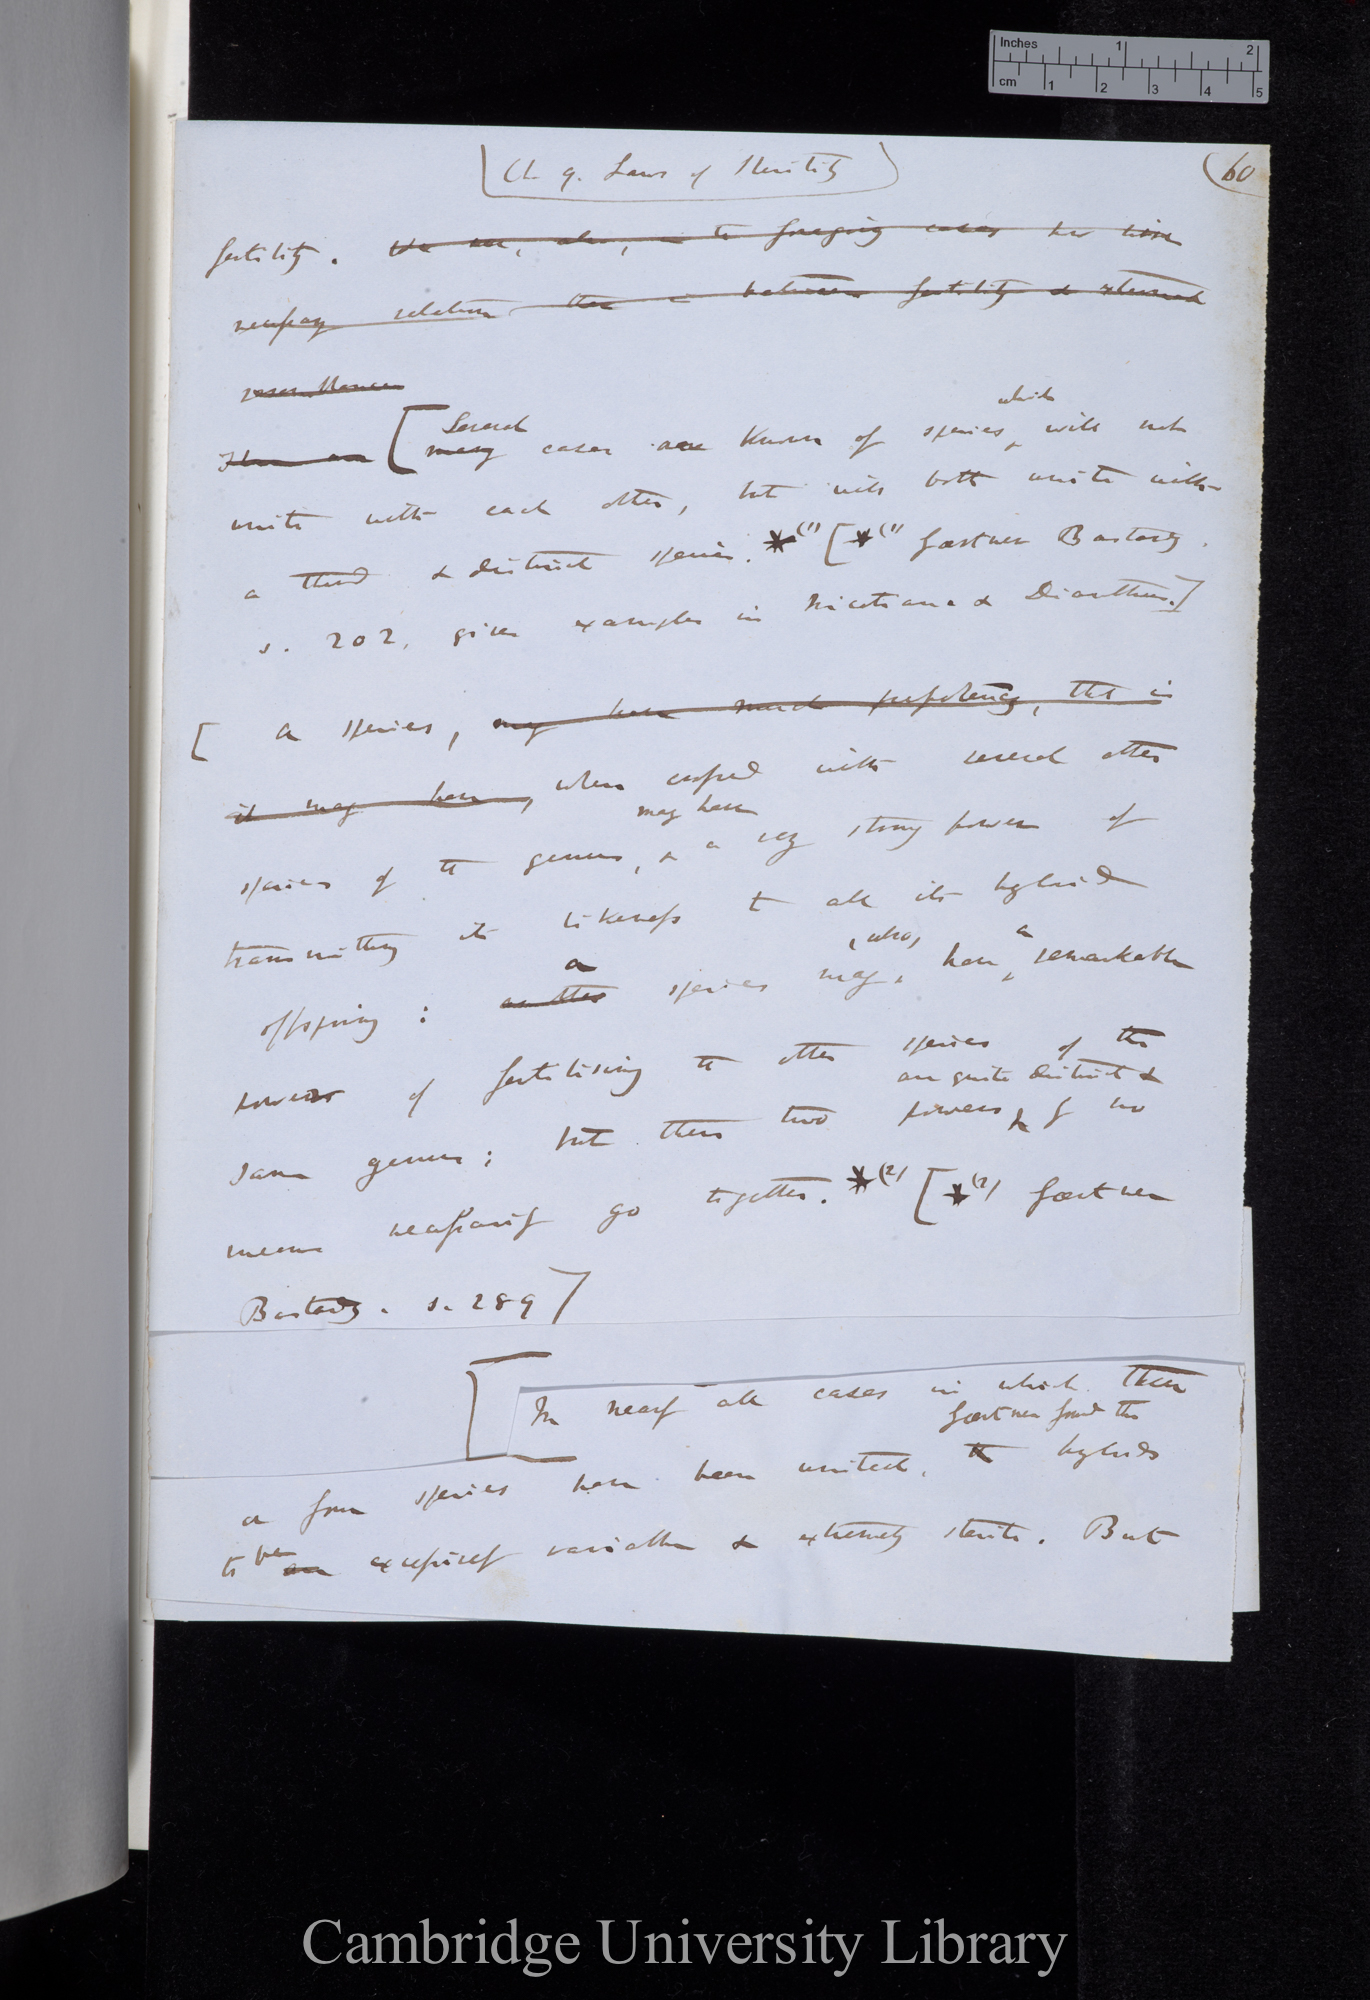 Inches 1 2
cm 1 2 3 4 5
Ch 9. Laws of Sterility
60
fertility. We see, also, in the foregoing cases how little
necessary relation there is between fertility & external
resemblance
There are [Several many cases are known of species, which will not
unite with each other, but will both unite with
a third & distinct species. *(1) [*(1) Gærtner Bastardz.
s. 202, gives examples in Nicotiana & Dianthus.]
[ A species, may have much prepotency, that is
it may have, when crossed with several other
species of the genus, & may have a very strong power of
transmitting its likeness to all its hybrid
offspring: another a species may, also, have a remarkable
power of fertilising the other species of the
same genus; but these two powers are quite distinct & & by no
means necessarily go together. *(2) [*(2) Gærtner
Bastardz. s. 289]
[In nearly all cases in which three
or four species have been united, Gærtner found the the hybrids
to be are excessively variable & extremely sterile. But
Cambridge University Library